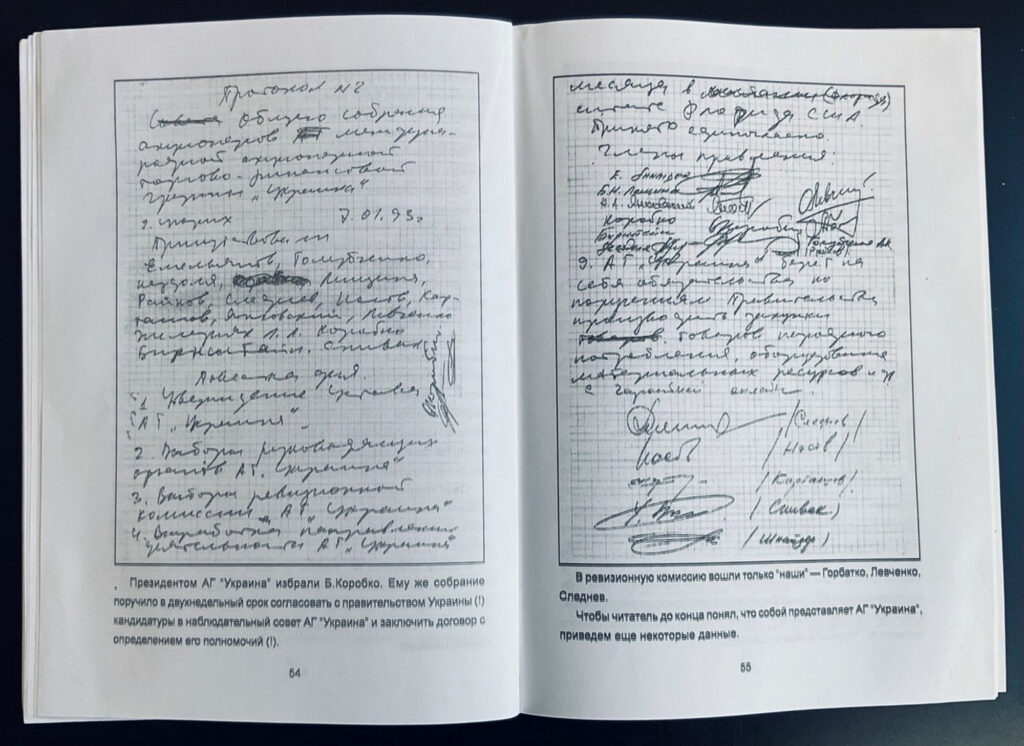 Протокол №2
Общего собрания
акционеров междуна-
родной акционерной
торгово-финансовой
группы „Украина“
г. Цюрих 7.01.93г.
Присутствовали
Емельянов, Голубченко,
Лищина,
Райков, Следнев, Носов, Кар-
ташов, Янковский, Левченко
Л.Л. Коробко
Бирштайн. Спивак
Повестка дня.
1. Утверждение Устава
АГ „Украина“.
2. Выборы руководящих
органов АГ „Украина“
3. Выборы ревизионной
комиссии АГ „Украина“
4. Выработка направлений
деятельности АГ „Украина“
Президентом АГ "Украина" избрали Б.Коробко. Ему же собрание
поручило в двухнедельный срок согласовать с правительством Украины (!)
кандидатуры в наблюдательный совет АГ "Украина" и заключить договор с
определением его полномочий (!).
54
месяца в
штате Флорида США.
Принято единогласно
Члены правления:
Коробко
Бирштайн
Голубченко
9. АГ „Украина“ берет на
себя обязательства по
поручениям Правительства
производить закупки
товаров народного
потребления, оборудования
материальных ресурсов и др
с гарантией оплаты.
/Следнев/
/Носов/
/Карташов/
/Спивак/
/Шнайдер/
В ревизионную комиссию вошли только "наши" — Горбатко, Левченко,
Следнев.
Чтобы читатель до конца понял, что собой представляет АГ "Украина",
приведем еще некоторые данные.
55